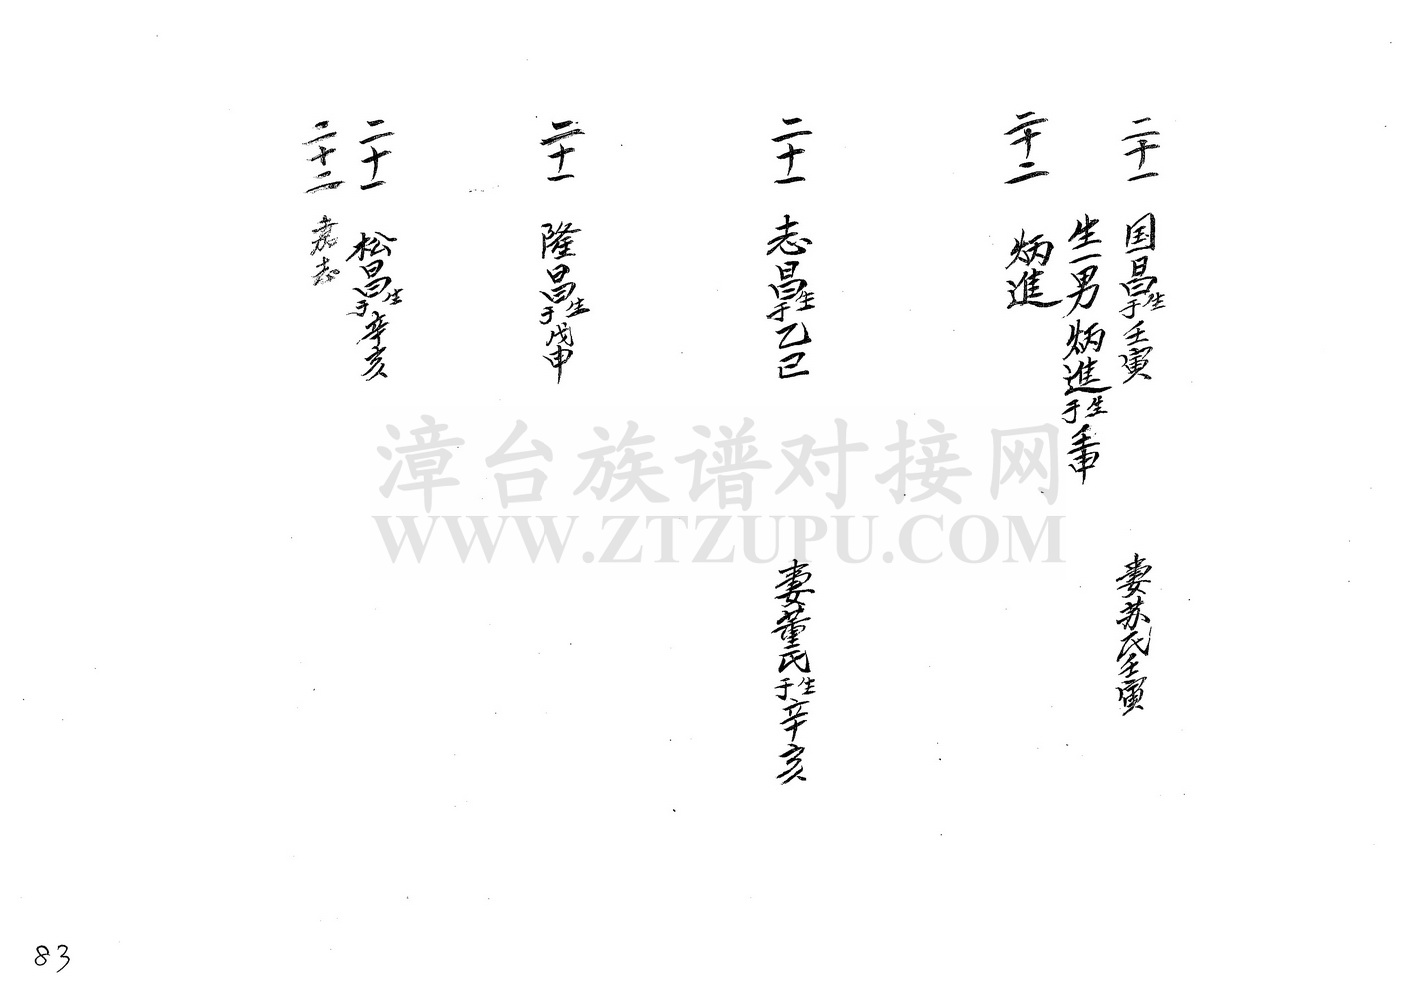 二十一 国昌生于壬寅 妻苏氏壬寅
生一男炳進生于壬申
二十二 炳進
二十一 志昌生于乙巳 妻董氏生于辛亥
二十一 隆昌生于戊申
二十一 松昌生于辛亥
二十二 嘉志
漳台族谱对接网
WWW.ZTZUPU.COM
83